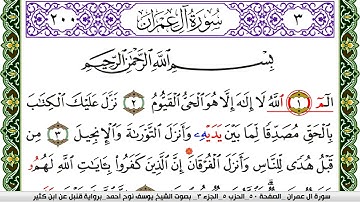 ٢٠٠ سُورَةُ آلِ عِمْرَان ٣
بِسْمِ ٱللَّهِ ٱلرَّحْمَٰنِ ٱلرَّحِيمِ
الٓمٓ ١ ٱللَّهُ لَا إِلَٰهَ إِلَّا هُوَ ٱلْحَىُّ ٱلْقَيُّومُ ٢ نَزَّلَ عَلَيْكَ ٱلْكِتَٰبَ
بِٱلْحَقِّ مُصَدِّقًا لِّمَا بَيْنَ يَدَيْهِۦ وَأَنزَلَ ٱلتَّوْرَىٰةَ وَٱلْإِنجِيلَ ٣ مِن
قَبْلُ هُدًى لِّلنَّاسِ وَأَنزَلَ ٱلْفُرْقَانَ إِنَّ ٱلَّذِينَ كَفَرُوا۟ بِـَٔايَٰتِ ٱللَّهِ لَهُمُۥ
سورة آل عمران _ الصفحة ٥٠_ الحزب ٥_ الجزء ٣ _ بصوت الشيخ يوسف نوح أحمد_ برواية قنبل عن ابن كثير